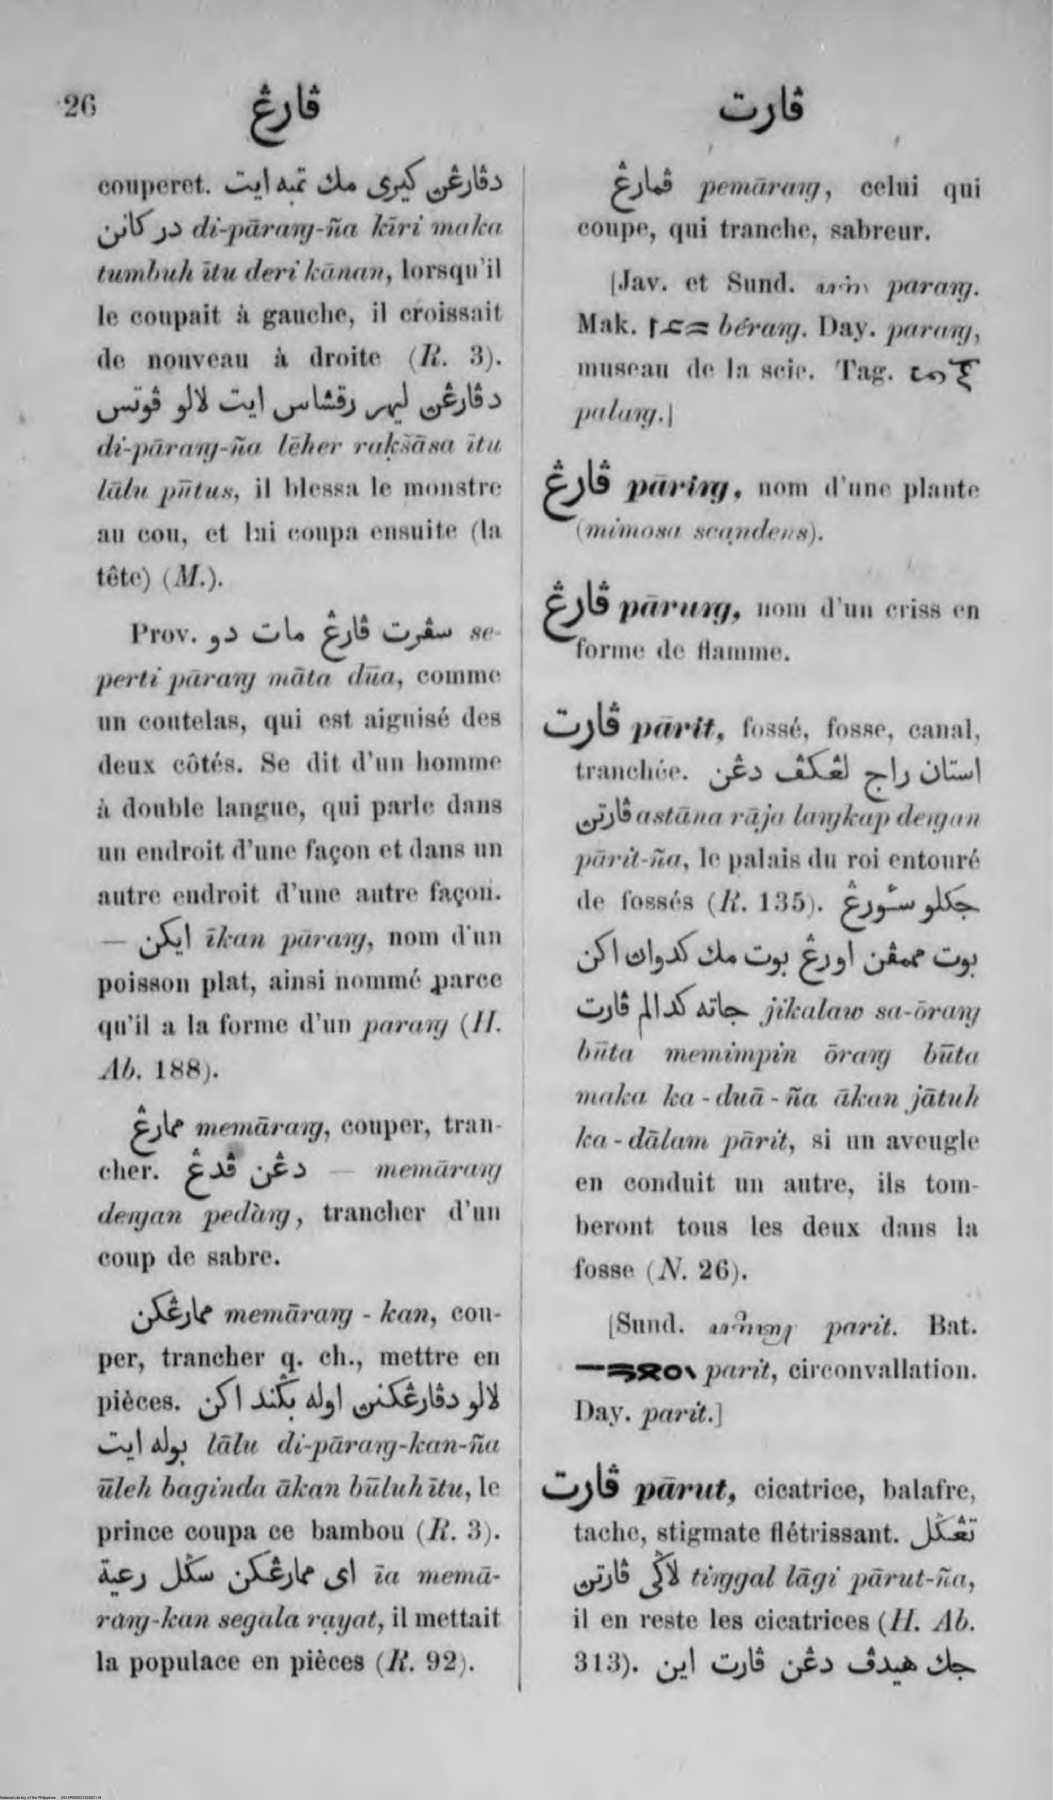 26 ڤارڠ ڤارت
couperet. دڤارڠن كيرى مك تمبه ايت
در كانن di-pāraŋ-ña kīri maka
tumbuh ītu deri kānan, lorsqu'il
le coupait à gauche, il croissait
de nouveau à droite (R. 3).
دڤارڠن ليهر رقشاس ايت لالو ڤوتس
di-pāraŋ-ña lēher rakṣāsa ītu
lālu pūtus, il blessa le monstre
au cou, et lui coupa ensuite (la
tête) (M.).
Prov. سڤرت ڤارڠ مات دو se-
perti pāraŋ māta dūa, comme
un coutelas, qui est aiguisé des
deux côtés. Se dit d'un homme
à double langue, qui parle dans
un endroit d'une façon et dans un
autre endroit d'une autre façon.
— ايكن īkan pāraŋ, nom d'un
poisson plat, ainsi nommé parce
qu'il a la forme d'un paraŋ (H.
Ab. 188).
ممارڠ memāraŋ, couper, tran-
cher. دڠن ڤدڠ — memāraŋ
deŋan pedàŋ, trancher d'un
coup de sabre.
ممارڠكن memāraŋ-kan, cou-
per, trancher q. ch., mettre en
pièces. لالو دڤارڠكنن اوله بݢند اكن
بوله ايت lālu di-pāraŋ-kan-ña
ūleh baginda ākan būluh ītu, le
prince coupa ce bambou (R. 3).
اى ممارڠكن سݢل رعية īa memā-
raŋ-kan segala rayat, il mettait
la populace en pièces (R. 92).
ڤمارڠ pemāraŋ, celui qui
coupe, qui tranche, sabreur.
[Jav. et Sund. paraŋ.
Mak. béraŋ. Day. paraŋ,
museau de la scie. Tag.
palaŋ.]
ڤارڠ pāriŋ, nom d'une plante
(mimosa scandens).
ڤارڠ pāruŋ, nom d'un criss en
forme de flamme.
ڤارت pārit, fossé, fosse, canal,
tranchée. استان راج لڠكڤ دڠن
ڤارتن astāna rāja laŋkap deŋan
pārit-ña, le palais du roi entouré
de fossés (R. 135). جكلو سـٔورڠ
بوت ممڤن اورڠ بوت مك كدوان اكن
جاته كدالم ڤارت jikalaw sa-ōraŋ
būta memimpin ōraŋ būta
maka ka-duā-ña ākan jātuh
ka-dālam pārit, si un aveugle
en conduit un autre, ils tom-
beront tous les deux dans la
fosse (N. 26).
[Sund. parit. Bat.
parit, circonvallation.
Day. parit.]
ڤارت pārut, cicatrice, balafre,
tache, stigmate flétrissant. تڠݢل
لاݢى ڤارتن tiŋgal lāgi pārut-ña,
il en reste les cicatrices (H. Ab.
313). جك هيدڤ دڠن ڤارت اين